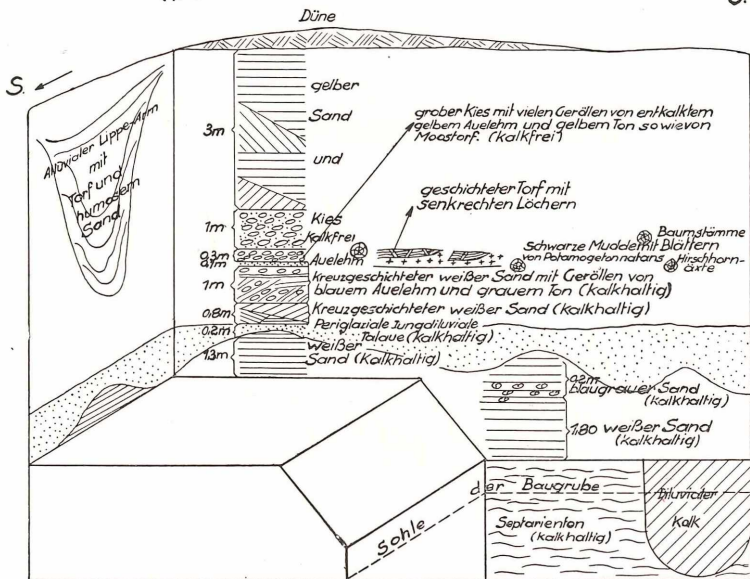 S.
Düne
S.
Alluvialer Lippe-Arm
mit
Torf und
humosem
Sand
3m
gelber
Sand
und
grober Kies mit vielen Geröllen von entkalktem
gelbem Auelehm und gelbem Ton sowie von
Moostorf. (kalkfrei)
geschichteter Torf mit
senkrechten Löchern
1m
Kies
Kalkfrei
0,3m
Auelehm
0,1m
Baumstämme
Schwarze Mudde mit Blättern
von Potamogeton natans
Hirschhorn-
äxte
1m
Kreuzgeschichteter weißer Sand mit Geröllen von
blauem Auelehm und grauem Ton (kalkhaltig)
0,8m
Kreuzgeschichteter weißer Sand (kalkhaltig)
0,2m
Periglaziale Jungdiluviale
Talaue (kalkhaltig)
1,3m
weißer
Sand (Kalkhaltig)
0,2m
blaugrauer Sand
(kalkhaltig)
1,80 weißer Sand
(kalkhaltig)
Sohle der Baugrube
Septarienton
(kalkhaltig)
Diluvialer
Kolk